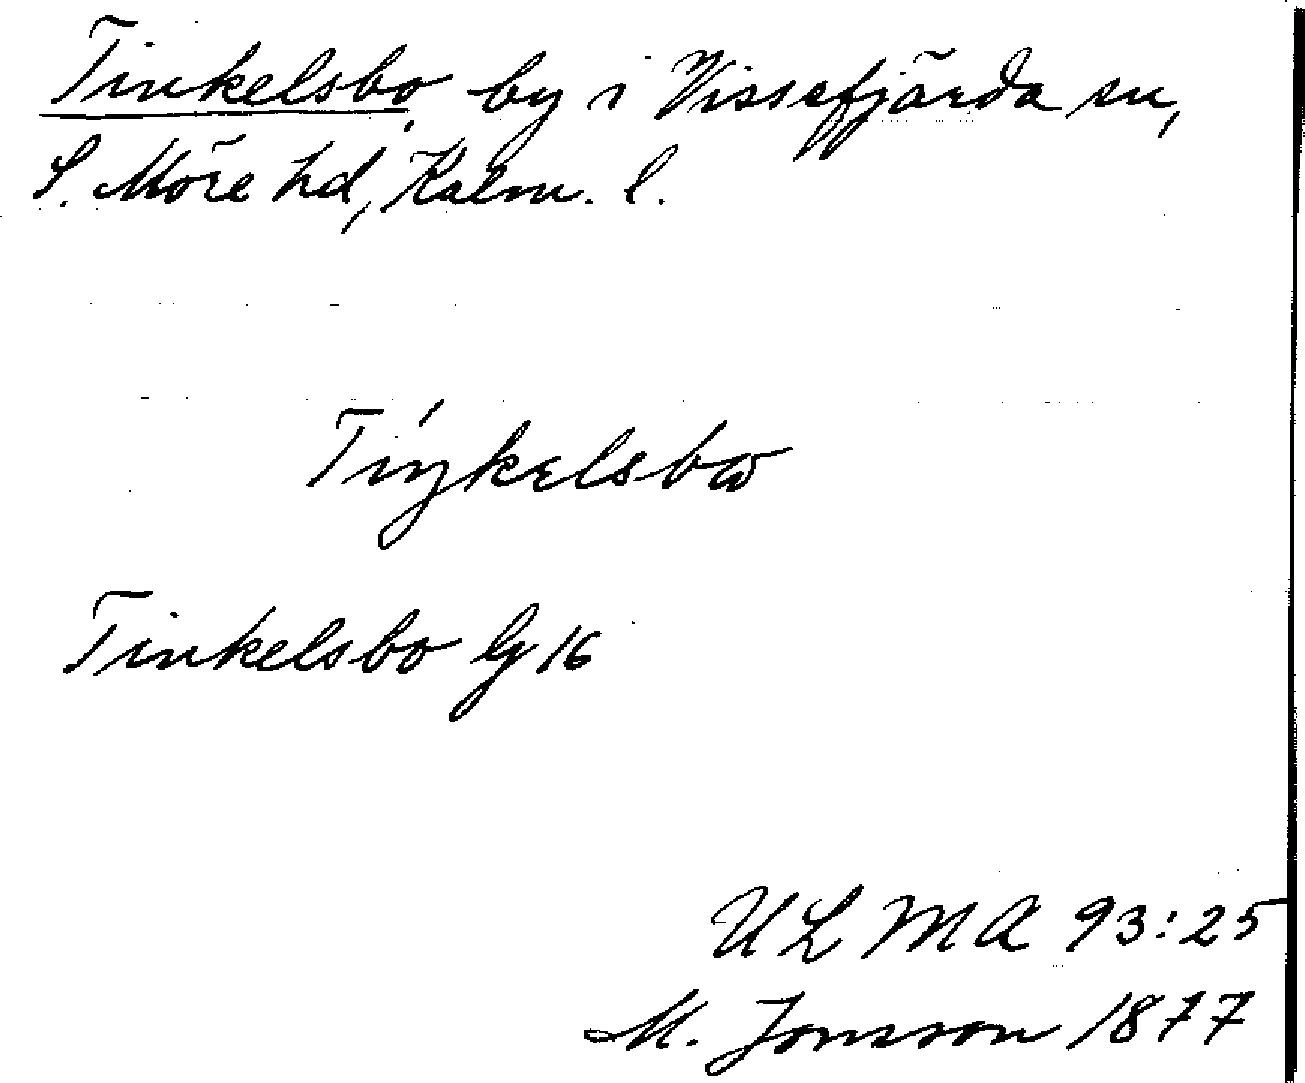 Tinkelsbo, by i Vissefjärda sn,
S. Möre hd, Kalm. l.
Tíŋkelsbω
Tinkelsbo G 16
ULMA 93:25
M. Jonsson 1877